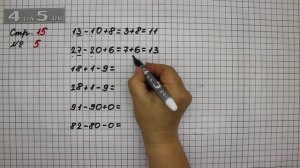 Стр. 15
№8 5
13-10+8=3+8=11
27-20+6=7+6=13
18+1-9=
28+1-9=
91-90+0=
82-80-0=